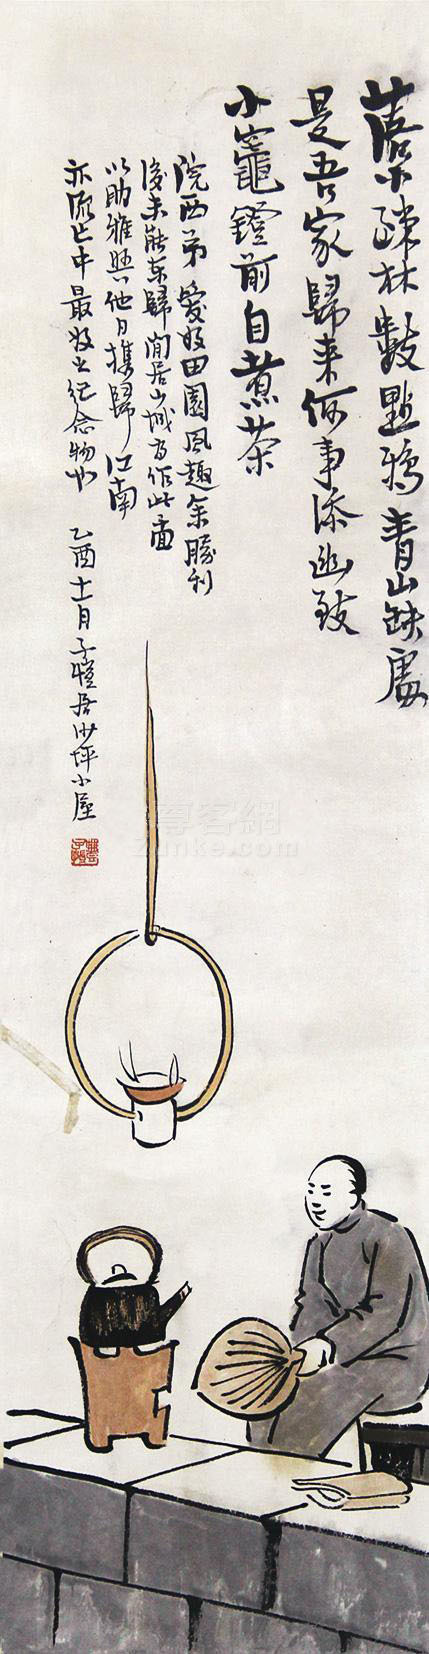 落木疎林數點鴉青山缺處
是吾家歸来何事添幽致
小竈鐙前自煮茶
院西弟愛好田園風趣余勝利
後未能東歸閒居山城為作此畫
以助雅興他日攜歸江南
亦流亡中最好之紀念物也 乙酉十一月子愷居沙坪小屋
zunke.com